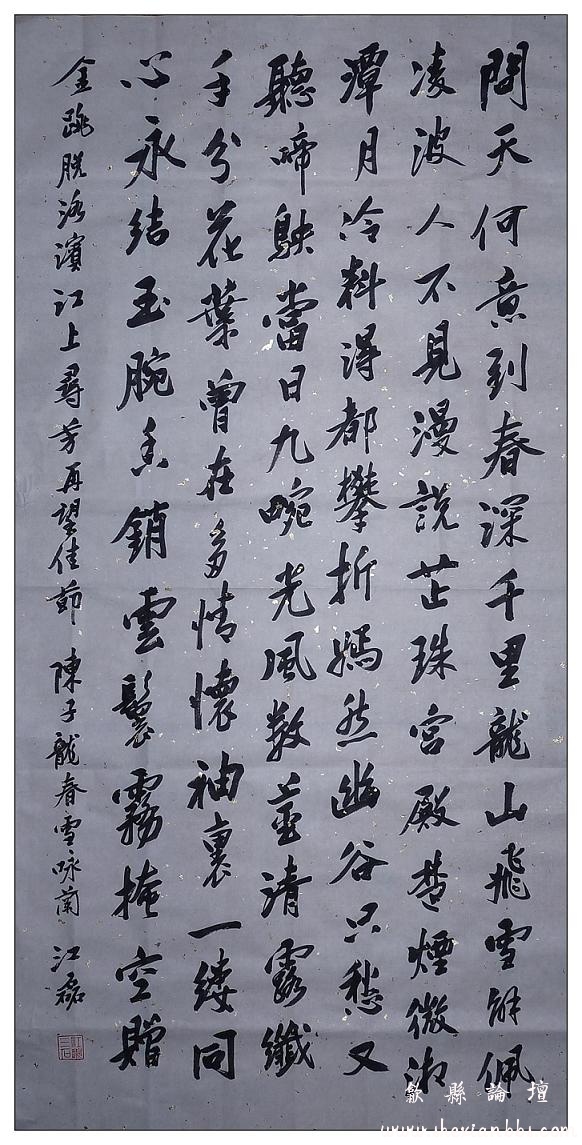 問天何意到春深千里龍山飛雪解佩
凌波人不見漫說芷珠宮殿楚煙微湘
潭月冷料得都攀折嫣然幽谷只愁又
聽啼鴃當日九畹光風數莖清露纖
手分花葉曾在多情懷袖裏一縷同
心永結玉腕香銷雲鬟霧掩空贈
金跳脫洛濱江上尋芳再望佳節 陳子龍春雪咏蘭 江磊
歙縣論壇